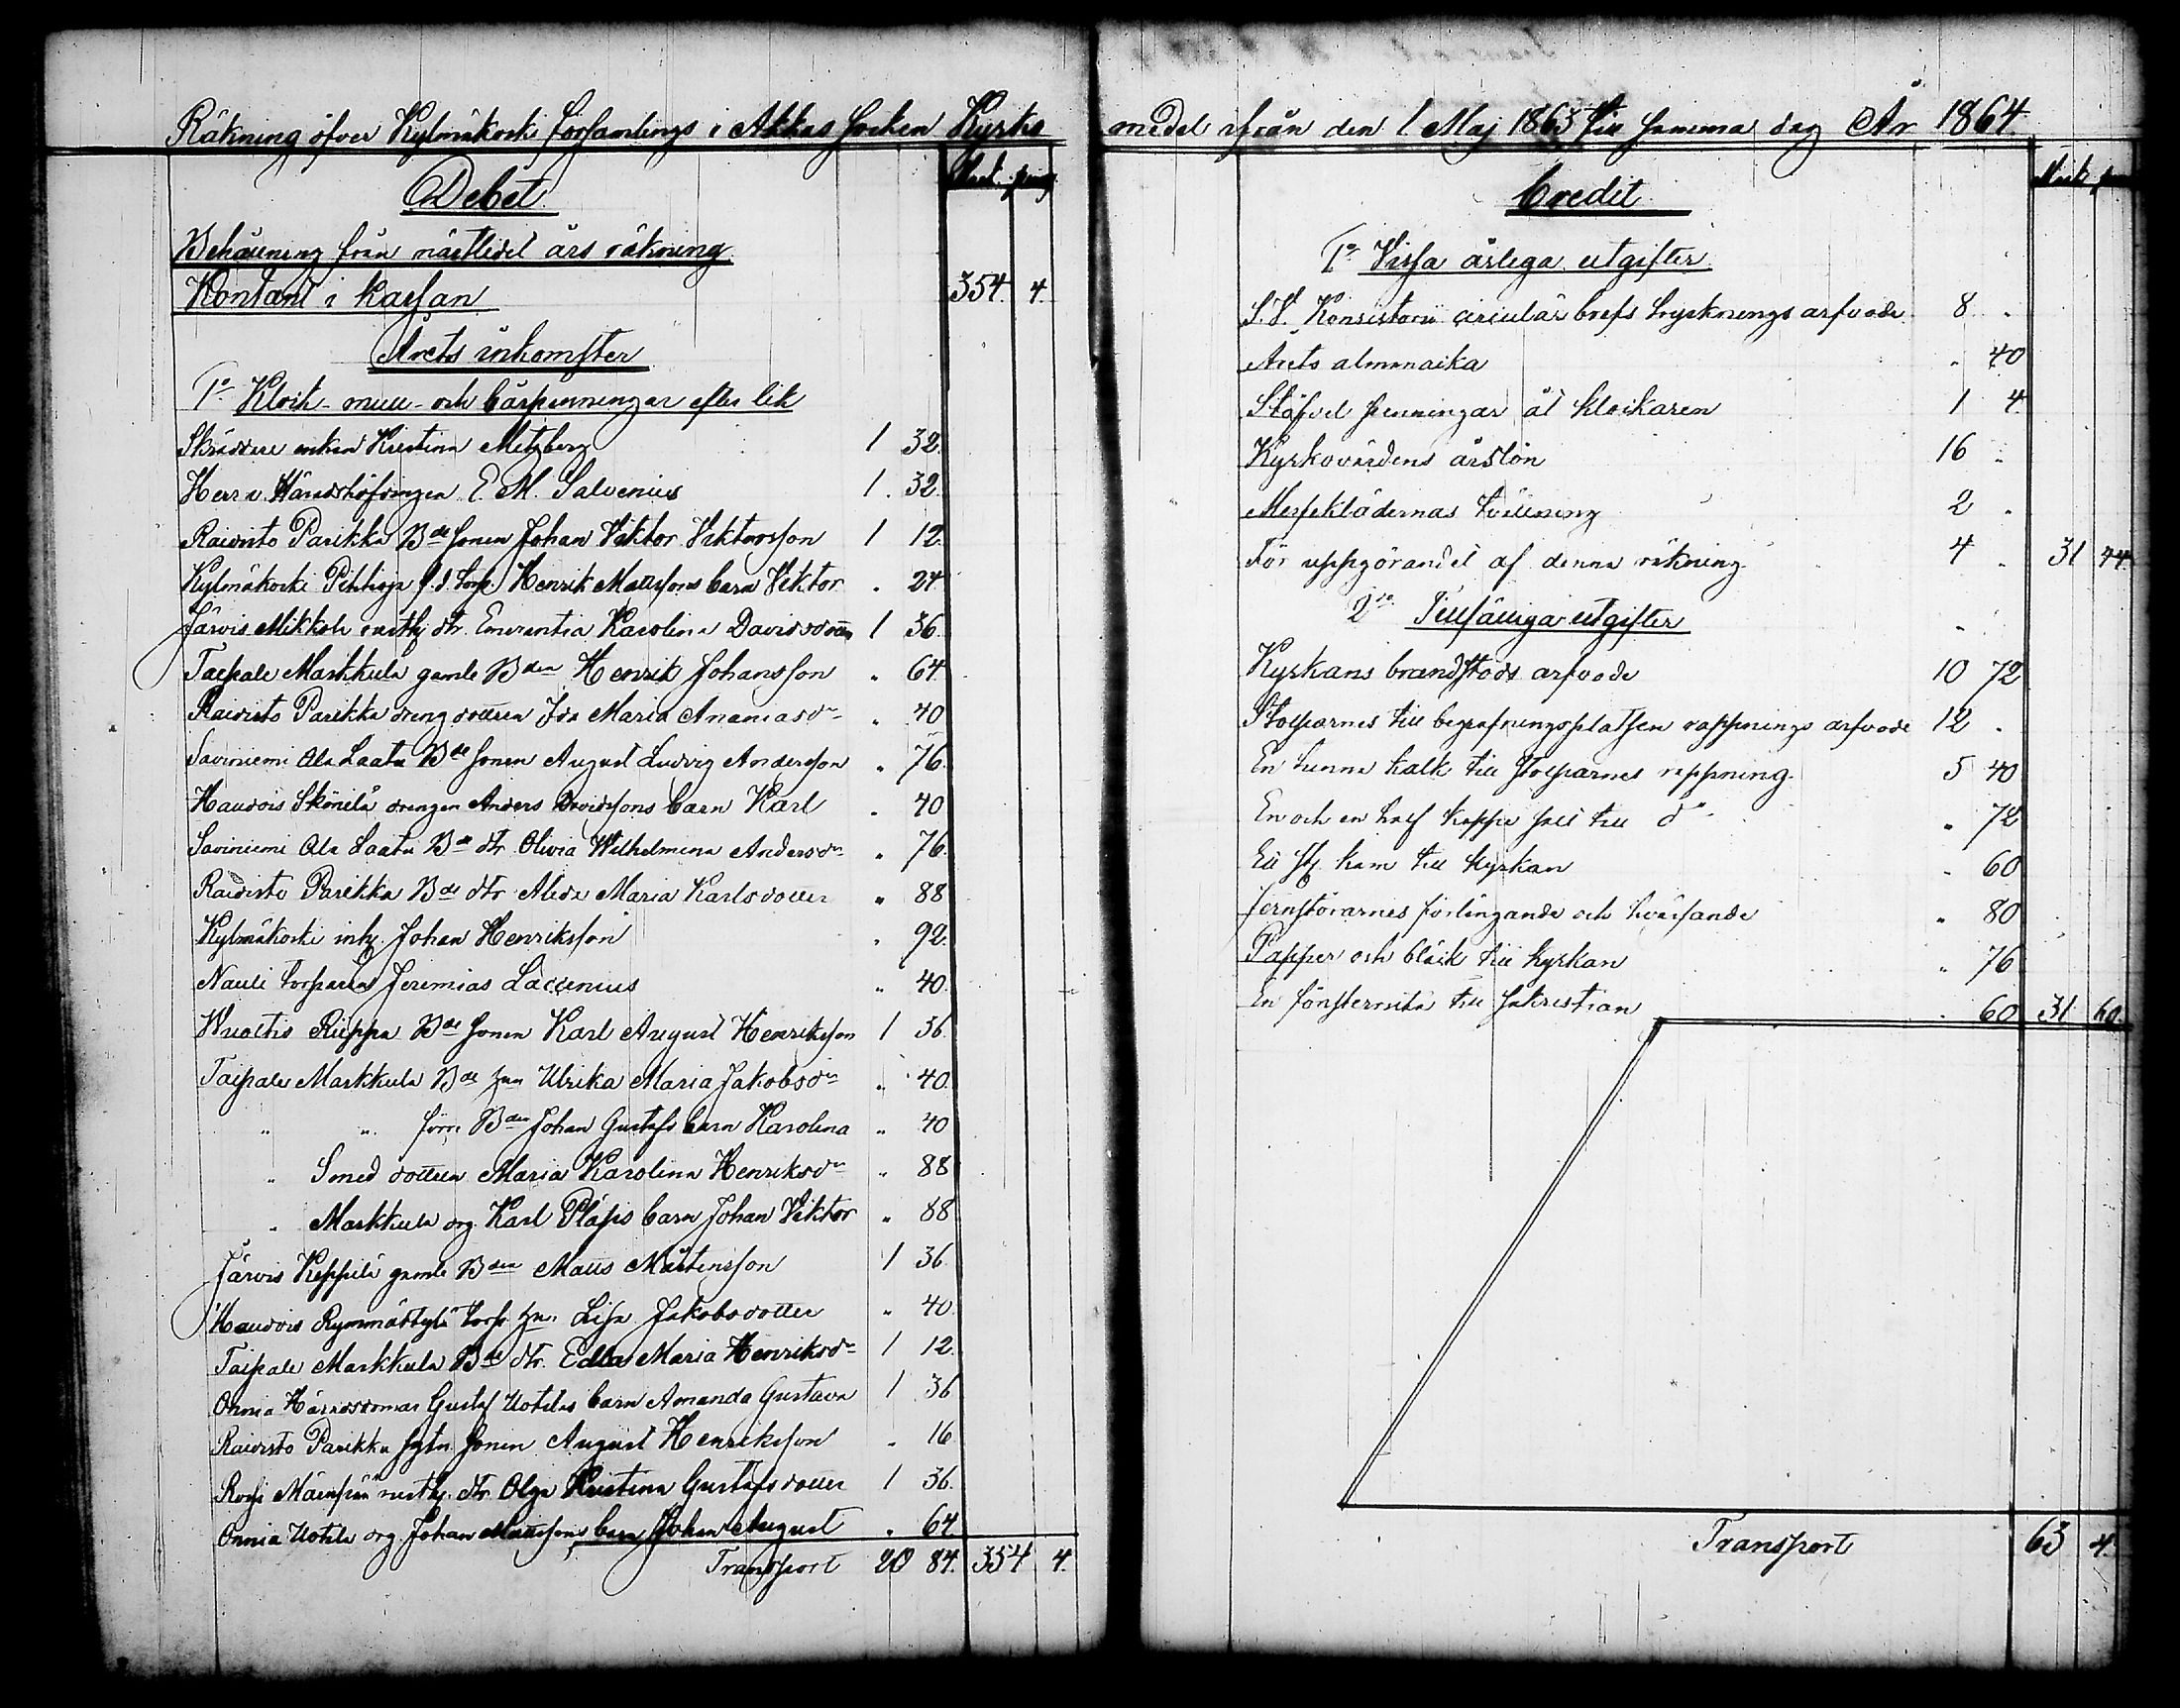 Räkning öfver Kylmäkoski församlings i Akkas socken Kyrko
Mark. penng
Debet
Behållning från nästlidet års räkning
Kontant i kassan 354. 4.
Årets inkomster
1o Klock- mull- och bårpenningar efter lik
Skräddare enkan Kristina Metzberg 1 32.
Herr v. Häradshöfdingen E. M. Salvenius 1. 32.
Raivisto Parikka Bde sonen Johan Viktor Viktorsson 1 12.
Kylmäkoski Penttiojs f.d. torp. Henrik Mattssons barn Viktor „ 24
Järvis Mikkola rusth dtr. Emerentia Karolina Davidsdotter 1 36.
Taipale Markkula gamle Bden Henrik Johansson „ 64
Raivisto Parikka dreng dottren Ida Maria Ananiasdr „ 40
Saviniemi Ala Laata Bde sonen August Ludvig Andersson „ 76.
Haudois Skönilä drengen Anders Davidssons barn Karl „ 40
Saviniemi Ala Laata Bde dtr Olivia Wilhelmina Andersdr „ 76.
Raivisto Parikka Bde dtr Alida Maria Karlsdotter „ 88
Kylmäkoski inh. Johan Henriksson „ 92.
Nauli torparen Jeremias Laccenius „ 40.
Wuoltis Rieppa Bde sonen Karl August Henriksson 1 36.
Taipale Markkula Bde hun Ulrika Maria Jakobsdr „ 40.
„ „ förre Bden Johan Gustafs barn Karolina „ 40
„ Smed dottren Maria Karolina Henriksdr „ 88
„ Markkula drg Karl Plåsis barn Johan Viktor „ 88
Järvis Keppilä gamle Bden Matts Mårtensson 1 36.
Haudois Rymmättylä torp. hu. Lisa Jakobsdotter „ 40.
Taipale Markkula Bde dtr. Edla Maria Henriksdr 1 12.
Onnia Häradsdomar Gustaf Uotilas barn Amanda Gustava 1 36
Raivisto Parikka sytn. sonen August Henriksson „ 16
Rogi Mäenpää rusth. dtr Olga Kristina Gustafsdotter 1 36.
Onnia Uotila drg. Johan Mattssons barn Johan August „ 64
Transport 20 84. 354 4.
medel ifrån den 1 Maj 1863 till samma dag År 1864.
Mark penng
Credit
1o Vissa årliga utgifter
S.S. Konsistorii circulär brefs tryckningsarfvode 8 „
Årets almanacka „ 40
Stöfvel penningar åt klockaren 1 4.
Kyrkovärdens årslön 16 „
Messeklädernas tvättning 2 „
För uppgörandet af denna räkning 4 „ 31 44.
2do Tillfälliga utgifter
Kyrkans brandstods arfvode 10 72
Stolparnes till begrafningsplatsen rappnings arfvode 12 „
En tunna kalk till stolparnes rappning 5 40
En och en half kappe salt till do „ 72
Ett st. kam till kyrkan „ 60
Jernstörarnes förlängande och hvässande „ 80
Papper och bläck till kyrkan „ 76
En fönsterruta till sakristian „ 60 31 60.
Transport 63 4.